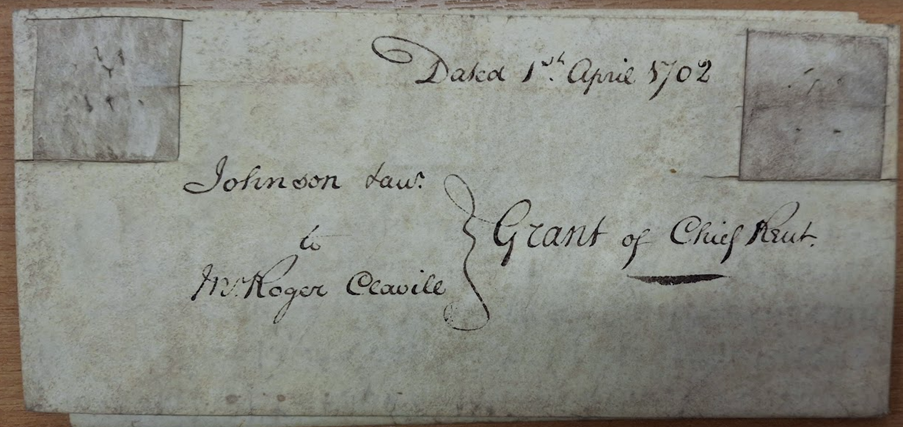 Dated 1st. April 1702
Johnson Law:
to
Mr. Roger Clavill
Grant of Chief Rent.